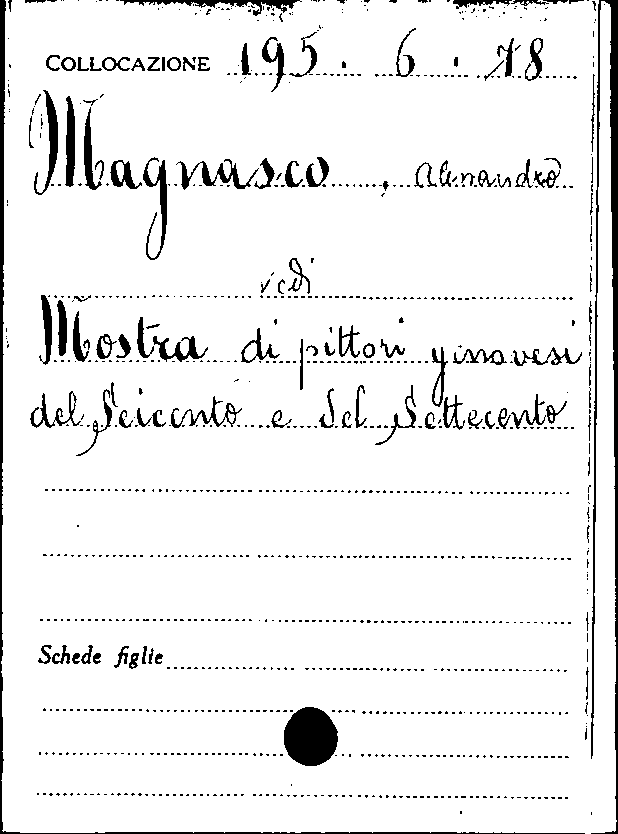 COLLOCAZIONE 195. 6. 78
Magnasco, Alessandro
vedi
Mostra di pittori genovesi
del Seicento e del Settecento
Schede figlie